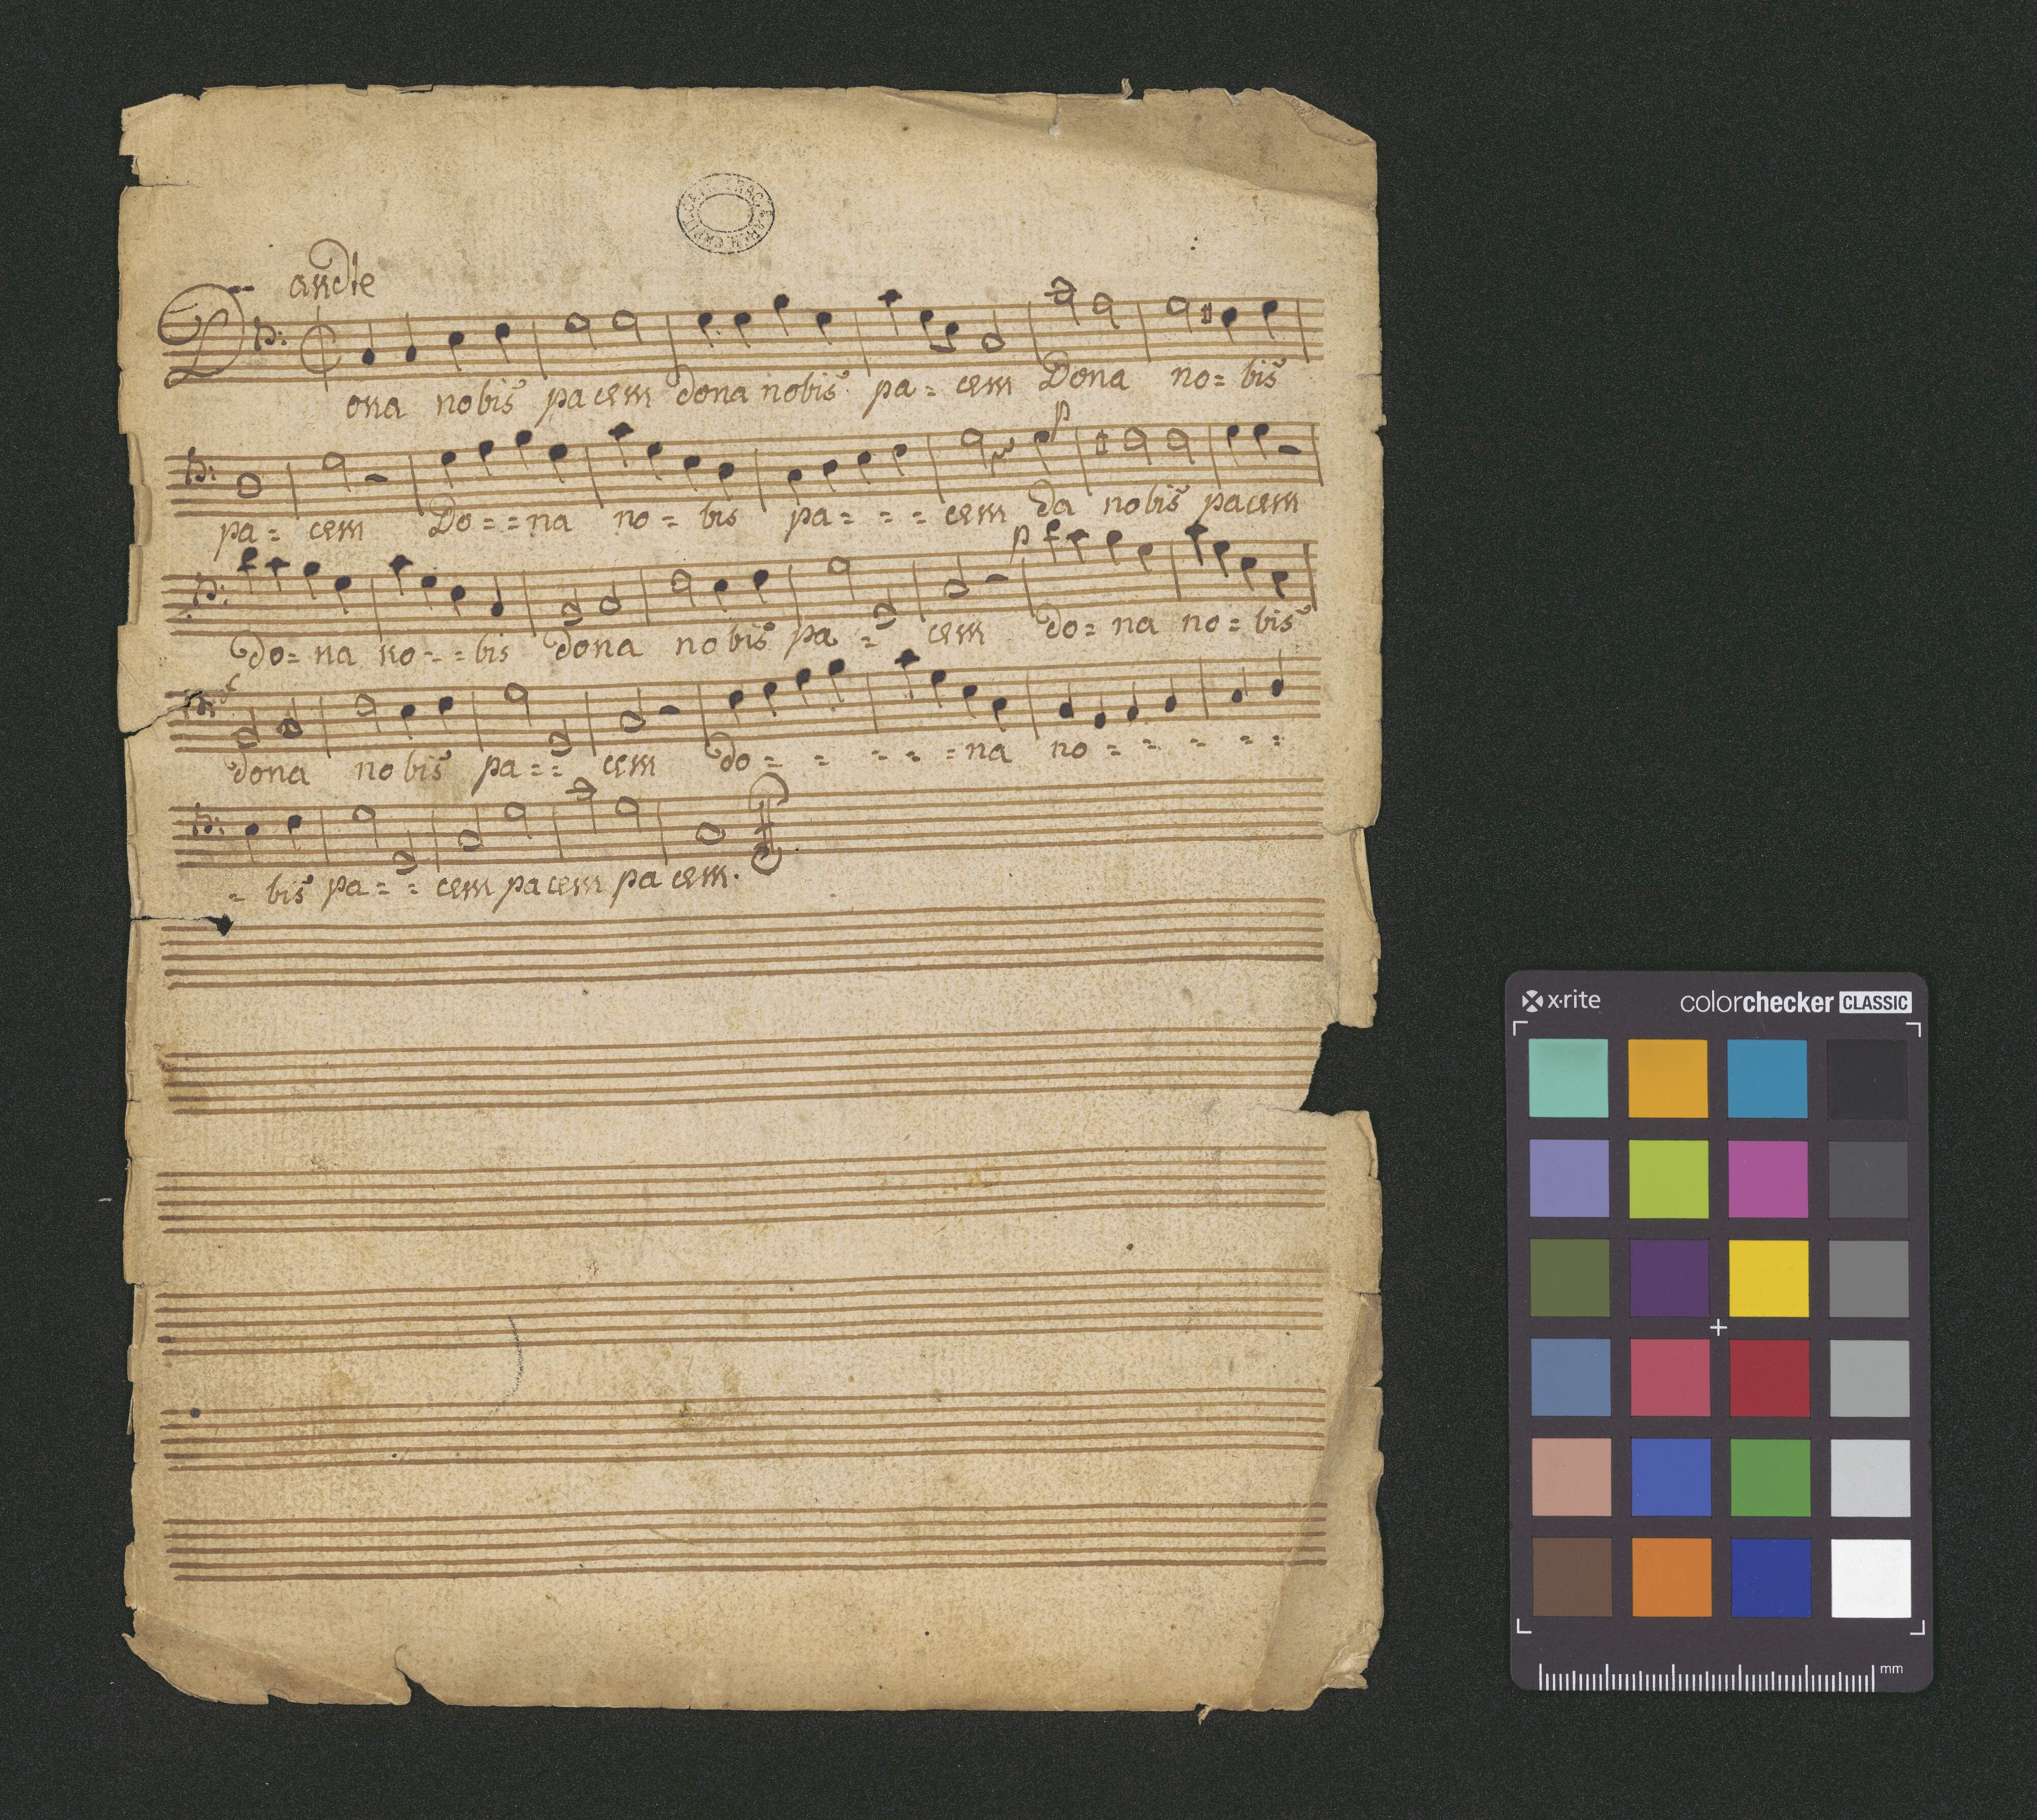 andte
Dona nobis pacem dona nobis pa = cem Dona no = bis
p
pa = cem Do = = na no = bis pa = = = cem da nobis pacem
p
do = na no = = bis dona nobis pa = cem do = na no = bis
f
dona nobis pa = = cem do = = = = = na no = = = = =
= bis pa = = cem pacem pacem.
x·rite colorchecker CLASSIC
mm